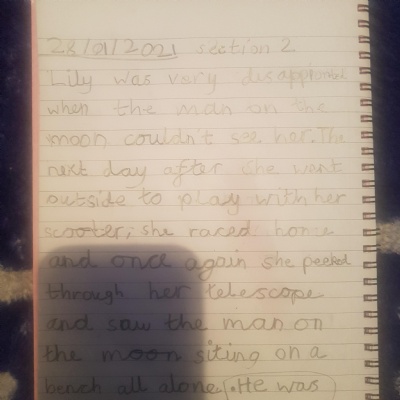 28/01/2021 section 2
Lily was very disappionted
when the man on the
moon couldn't see her. The
next day after she went
outside to play with her
scooter, she raced home
and once again she peeked
through her telescope
and saw the man on
the moon siting on a
bench all alone. He was